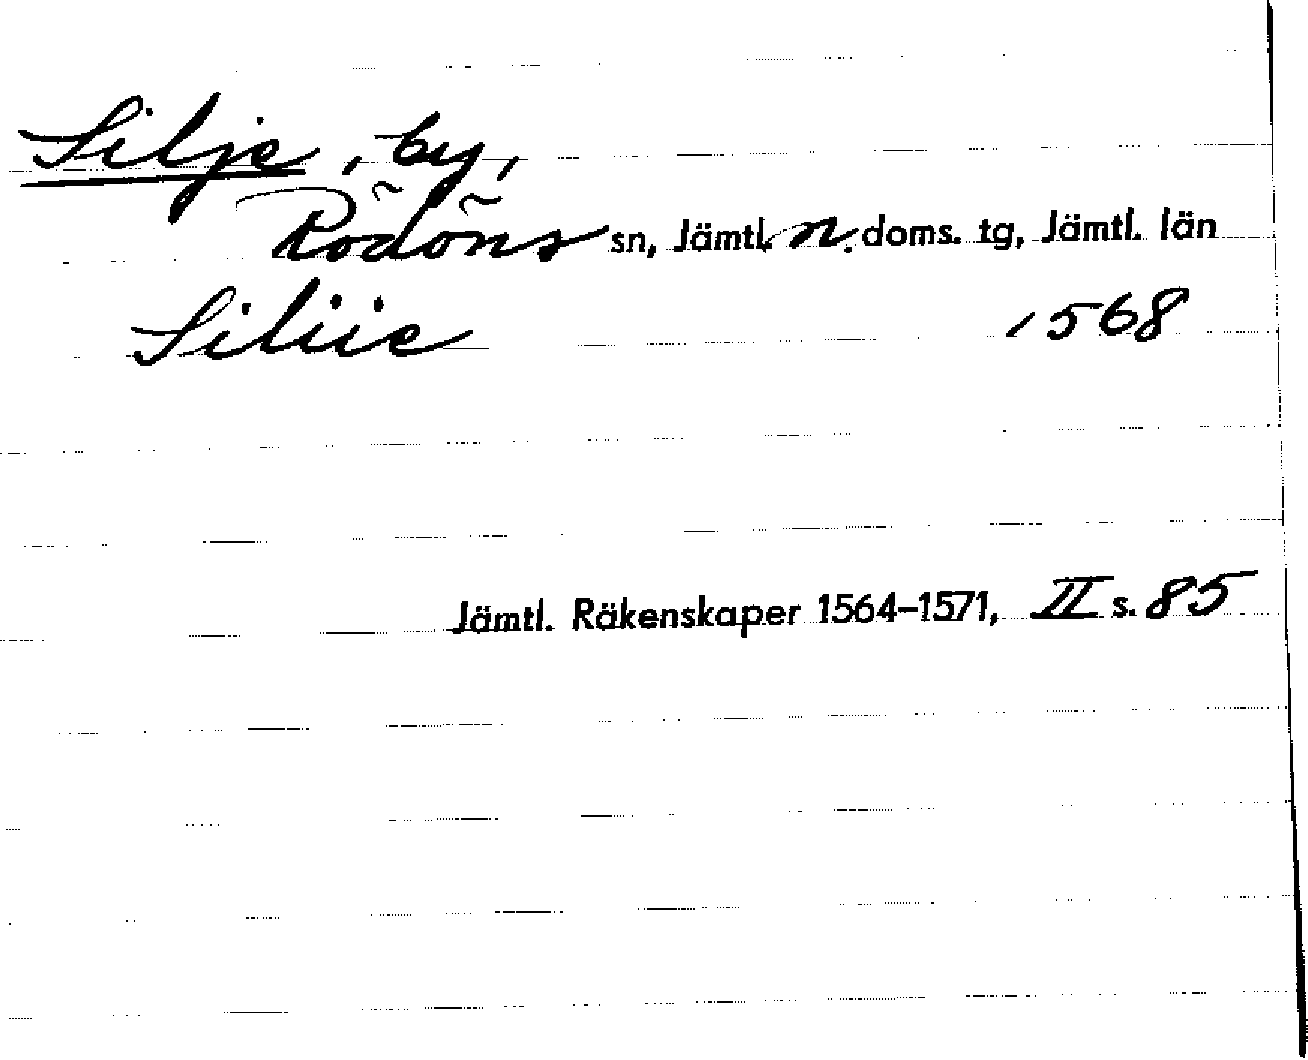 Silje, by,
Rödöns sn, Jämtl. n. doms. tg, Jämtl. län
Siliie 1568
Jämtl. Räkenskaper 1564–1571, II s. 85